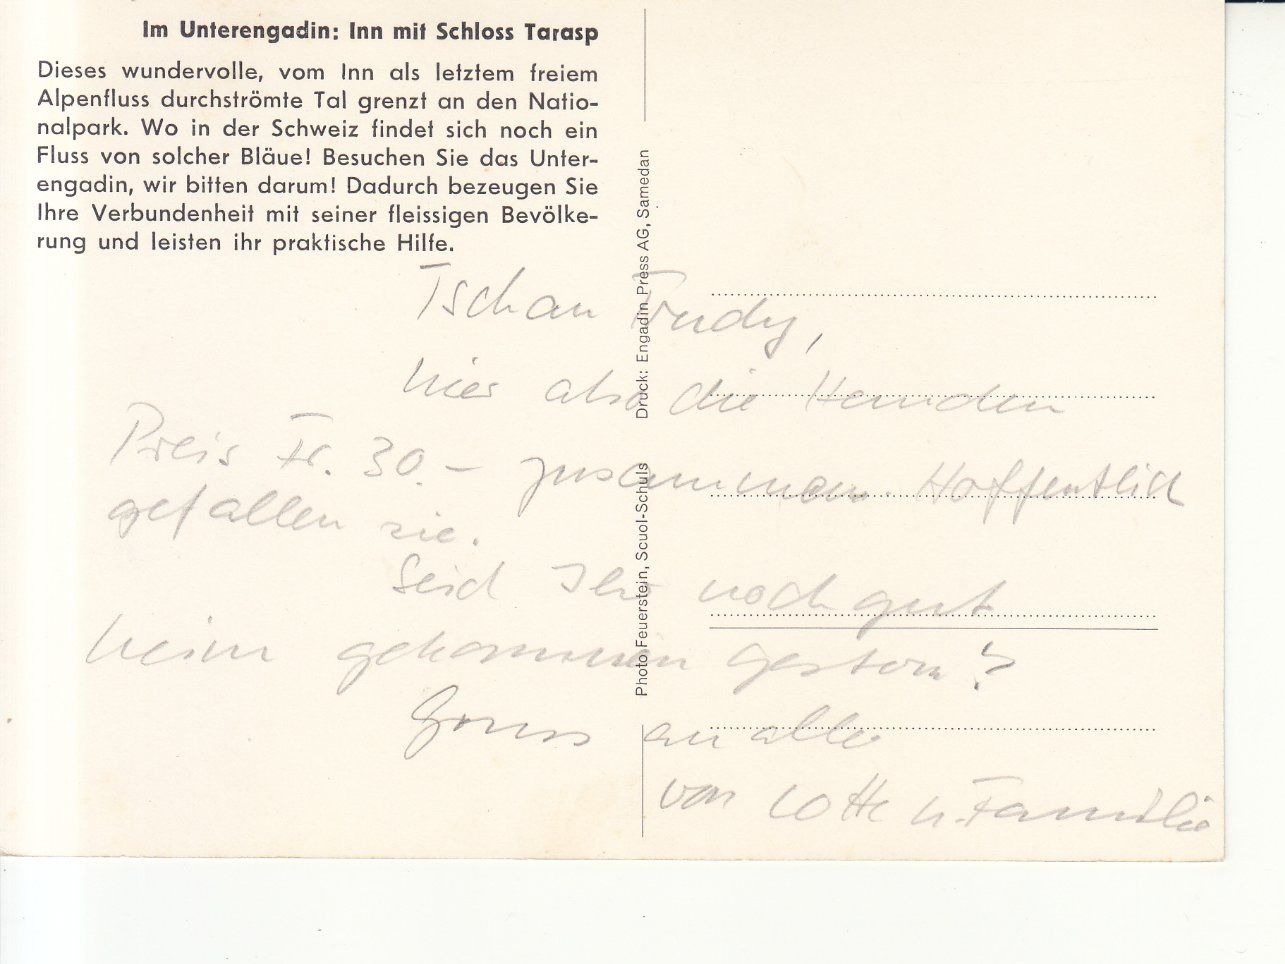 Im Unterengadin: Inn mit Schloss Tarasp
Dieses wundervolle, vom Inn als letztem freiem
Alpenfluss durchströmte Tal grenzt an den Natio-
nalpark. Wo in der Schweiz findet sich noch ein
Fluss von solcher Bläue! Besuchen Sie das Unter-
engadin, wir bitten darum! Dadurch bezeugen Sie
Ihre Verbundenheit mit seiner fleissigen Bevölke-
rung und leisten ihr praktische Hilfe.
Photo Feuerstein, Scuol-Schuls Druck: Engadin Press AG, Samedan
Tschau Trudy,
hier also die Hemden
Preis Fr. 30.– zusammen. Hoffentlich
gefallen sie.
Seid Ihr noch gut
heim gekommen gestern?
Gruss an alle
von Lotte u. Familie